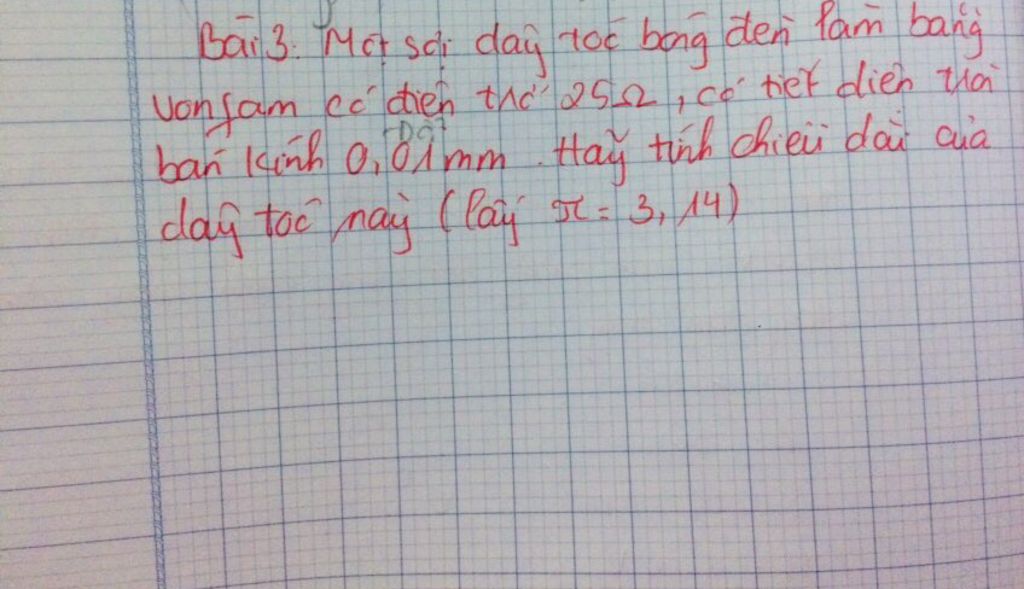 Bài 3: Một sợi dây tóc bóng đèn làm bằng
vonfam có điện trở 25Ω, có tiết diện tròn
bán kính 0,01mm. Hãy tính chiều dài của
dây tóc này (lấy π = 3,14)